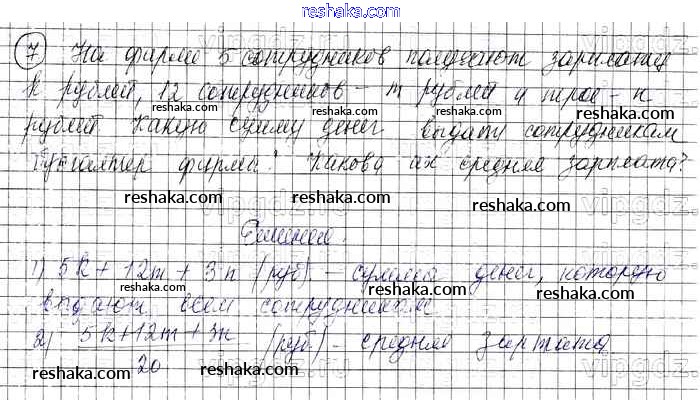 reshaka.com
7 На фирме 5 сотрудников получают зарплату
k рублей, 12 сотрудников - m рублей и трое - n
рублей. Какую сумму денег выдаст сотрудникам
бухгалтер фирмы? Какова их средняя зарплата?
Решение.
1) 5k + 12m + 3n (руб) - сумма денег, которую
выдают всем сотрудникам
2) 5k+12m+3n / 20 (руб) - средняя зарплата
reshaka.com